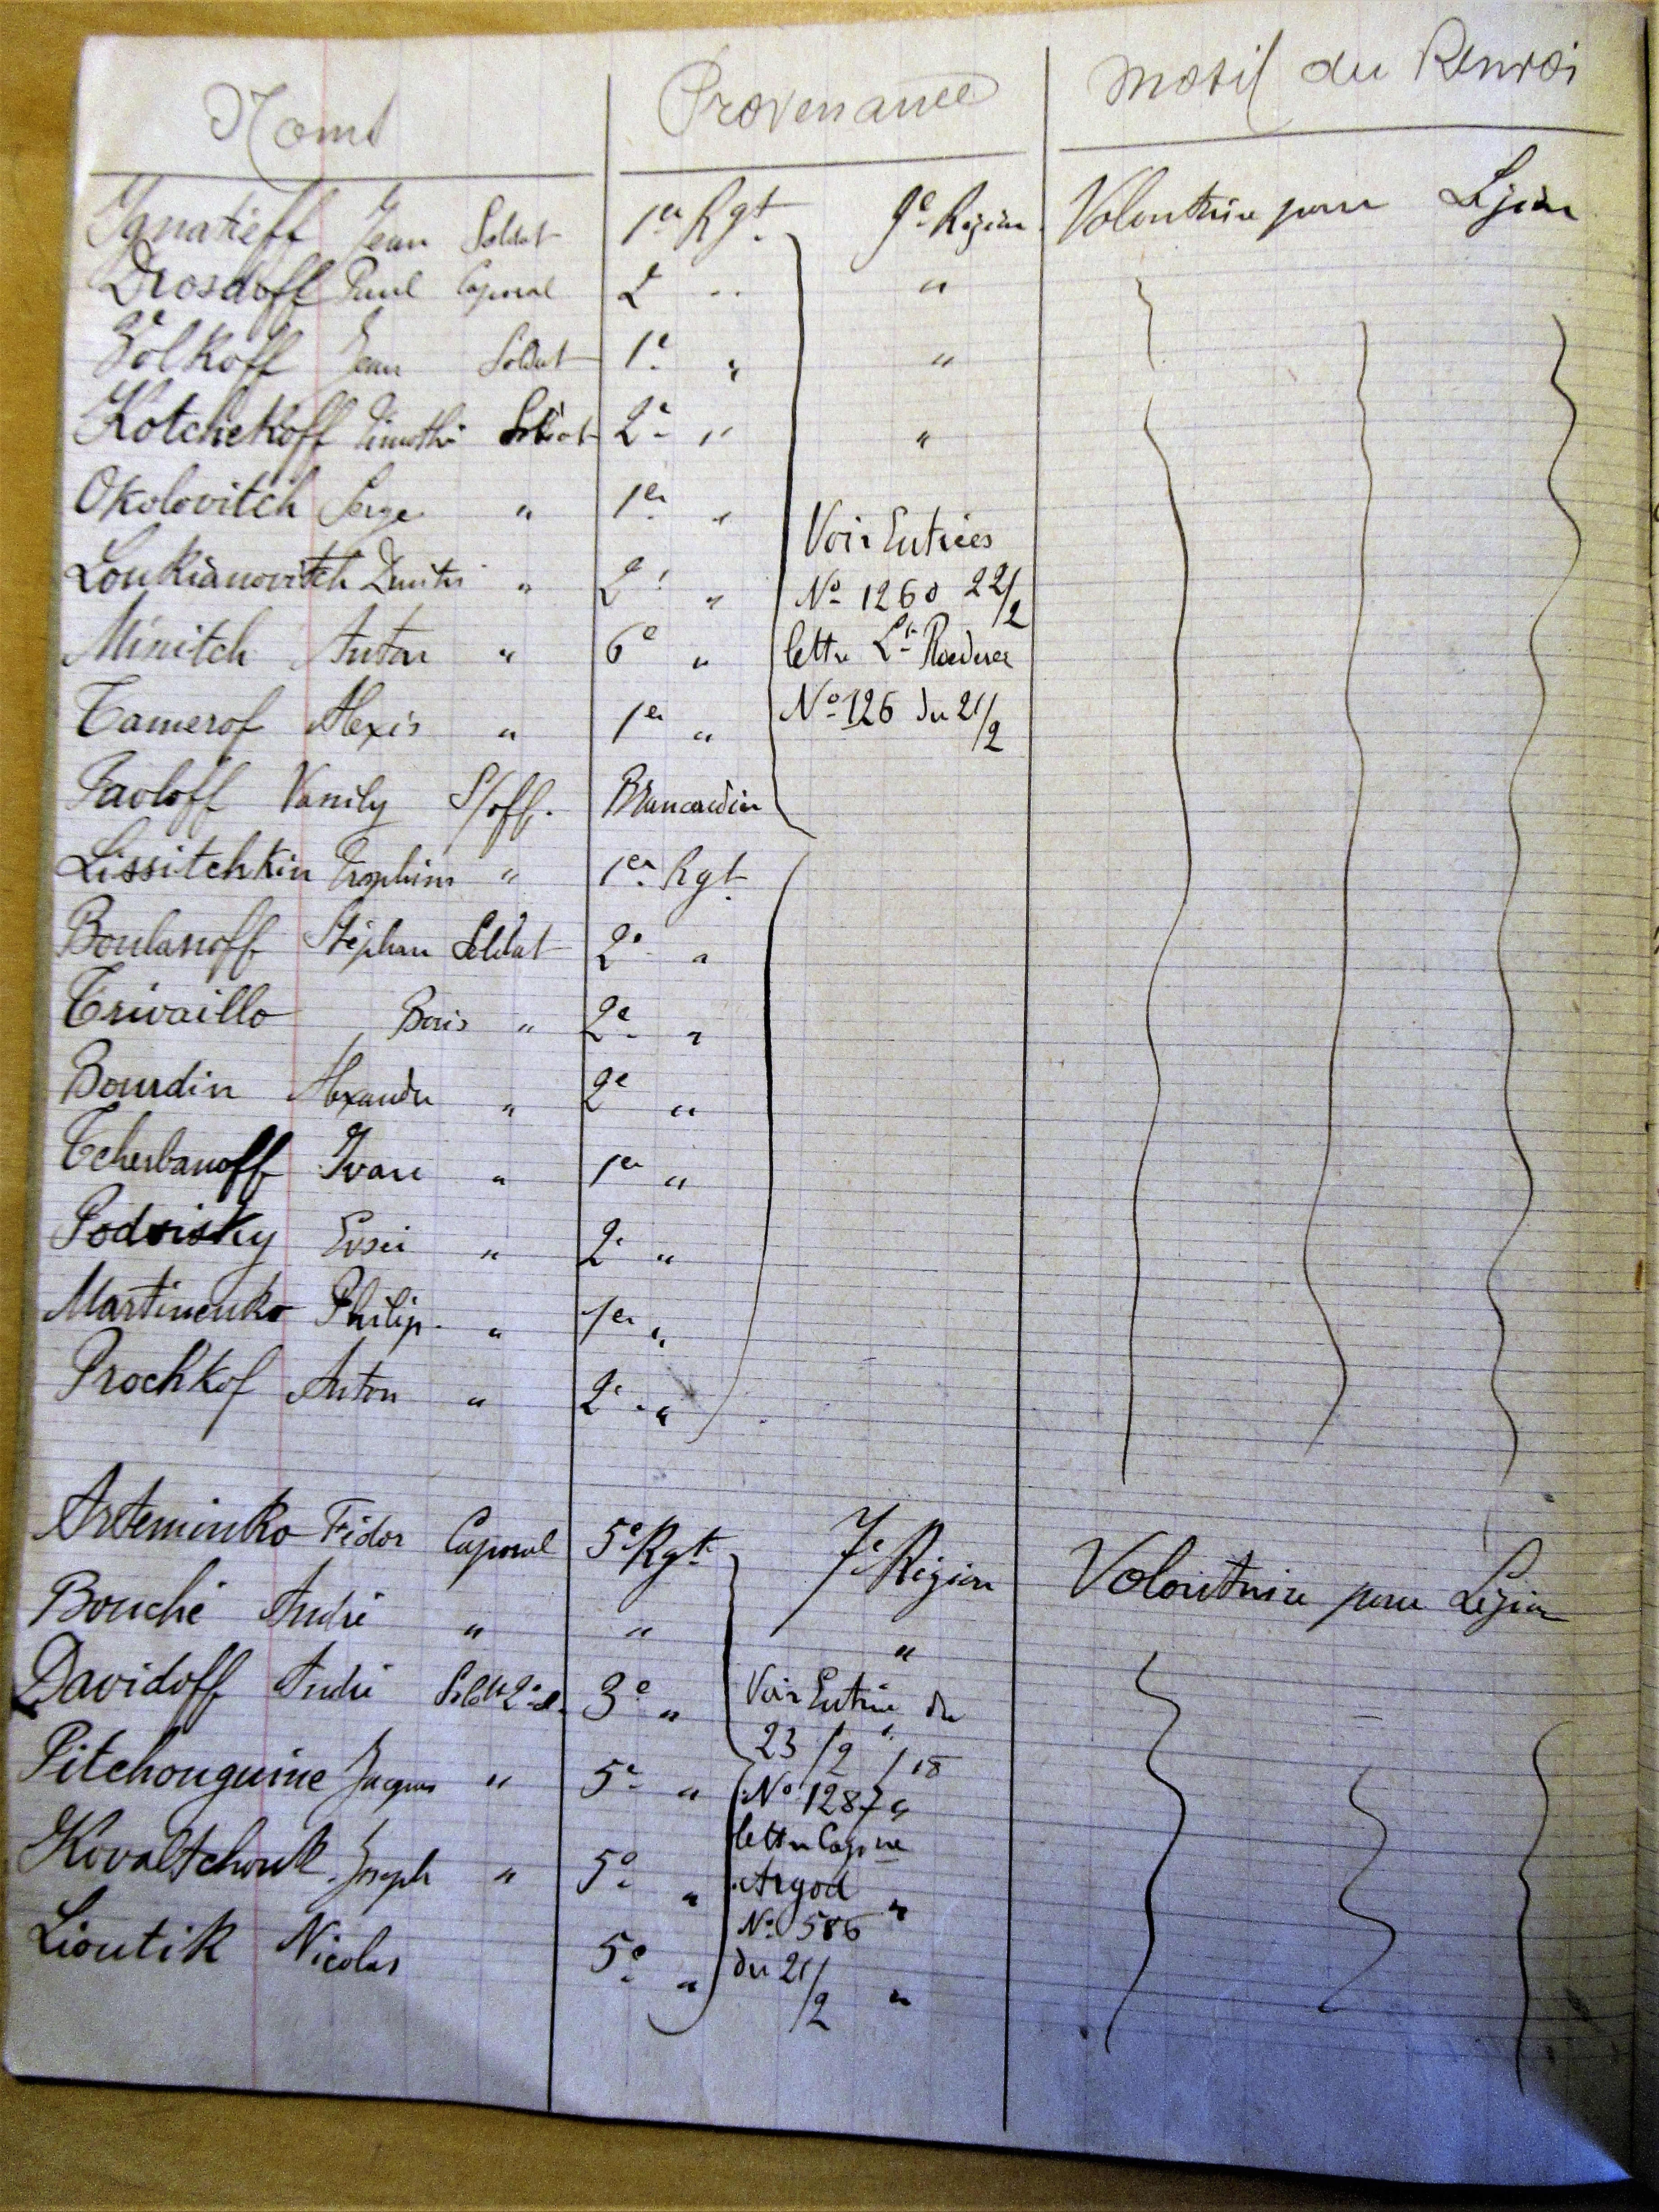 Noms Provenance Motif du Renvoi
Ignatieff Jean Soldat 1er Rgt. 9e Région Volontaire pour Légion
Drosdoff Paul Caporal 2 " "
Volkoff Jean Soldat 1e " "
Kotchekoff Timothé Soldat 2e " "
Okolovitch Serge " 1er "
Voir Entrées
Loukianovitch Dmitri " 2e " No 1260 22/2
Minitch Anton " 6e " lettre Lt Roederer
Tamerof Alexis " 1er " No 126 du 21/2
Pavloff Vassily S/off. Brancardier
Lissitchkin Trophim " 1er Rgt
Boulanoff Stéphan Soldat 2e "
Trivaillo Boris " 2e "
Bourdin Alexandre " 2e "
Tcherbanoff Ivan " 1er "
Podvisky Evsei " 2e "
Martinenko Philip. " 1er "
Prochkof Anton " 2e "
Arteminko Fédor Caporal 5e Rgt 7e Région Volontaire pour Légion
Bouché André " " "
Davidoff André Soldt 2e cl. 3e " Voir Entrée du
23/2/18
Pitchouguine Jacques " 5e " No 1287 "
lettre Capne
Kovaltchouk Joseph " 5e " Argod "
No 586
Lioutik Nicolas 5e " du 21/2 "